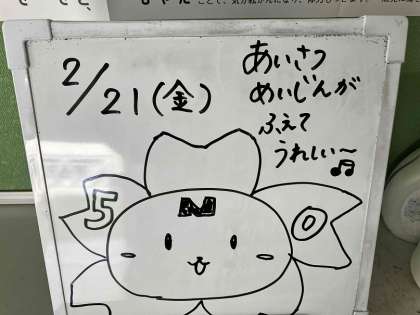 2/21(金)
あいさつ
めいじんが
ふえて
うれしい〜♫
N
5
0